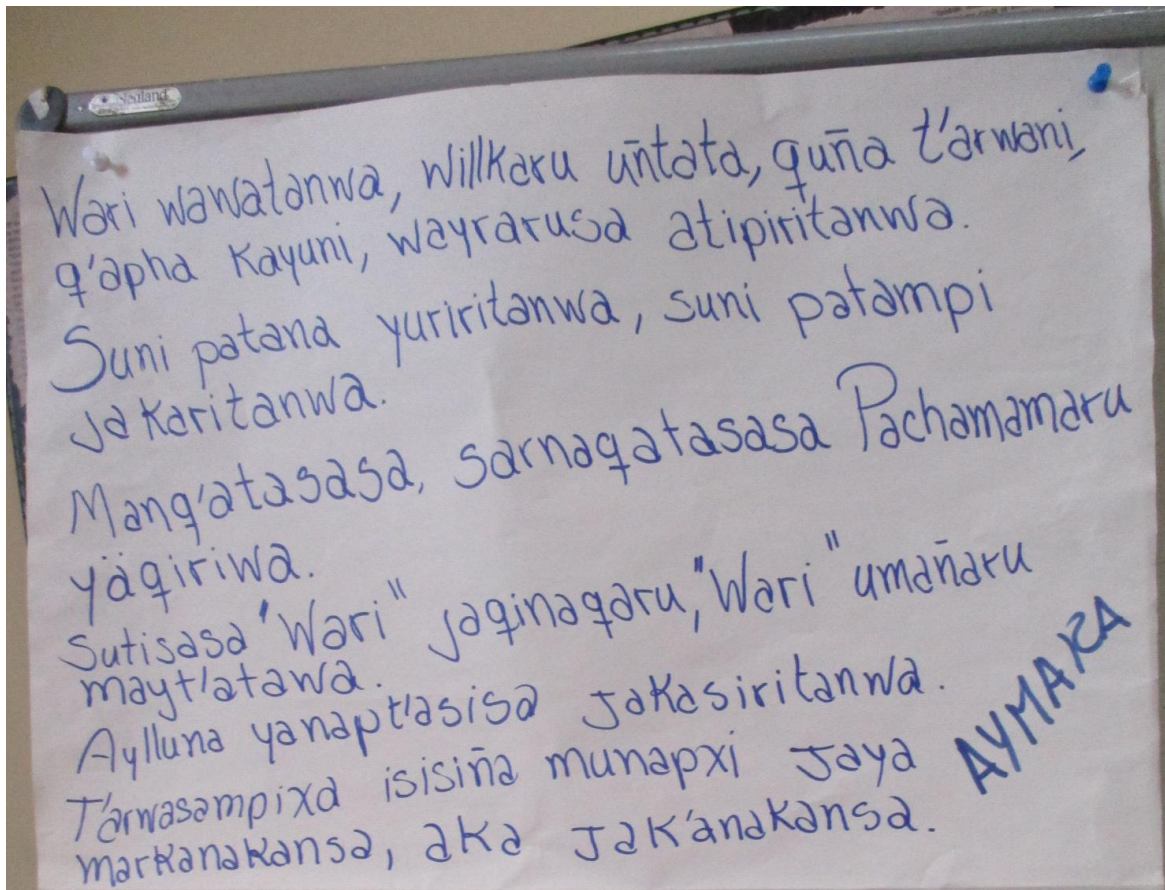 Sealand
Wari wawatanwa, willkaru uñtata, quña t'arwani,
q'apha kayuni, wayrarusa atipiritanwa.
Suni patana yuriritanwa, suni patampi
jakaritanwa.
Manq'atasasa, sarnaqatasasa Pachamamaru
yäqiriwa.
Sutisasa "Wari" jaqinaqaru, "Wari" umañaru
mayt'atawa.
Aylluna yanapt'asisa jakasiritanwa.
T'arwasampixa isisiña munapxi jaya
markanakansa, aka jak'anakansa.
AYMARA